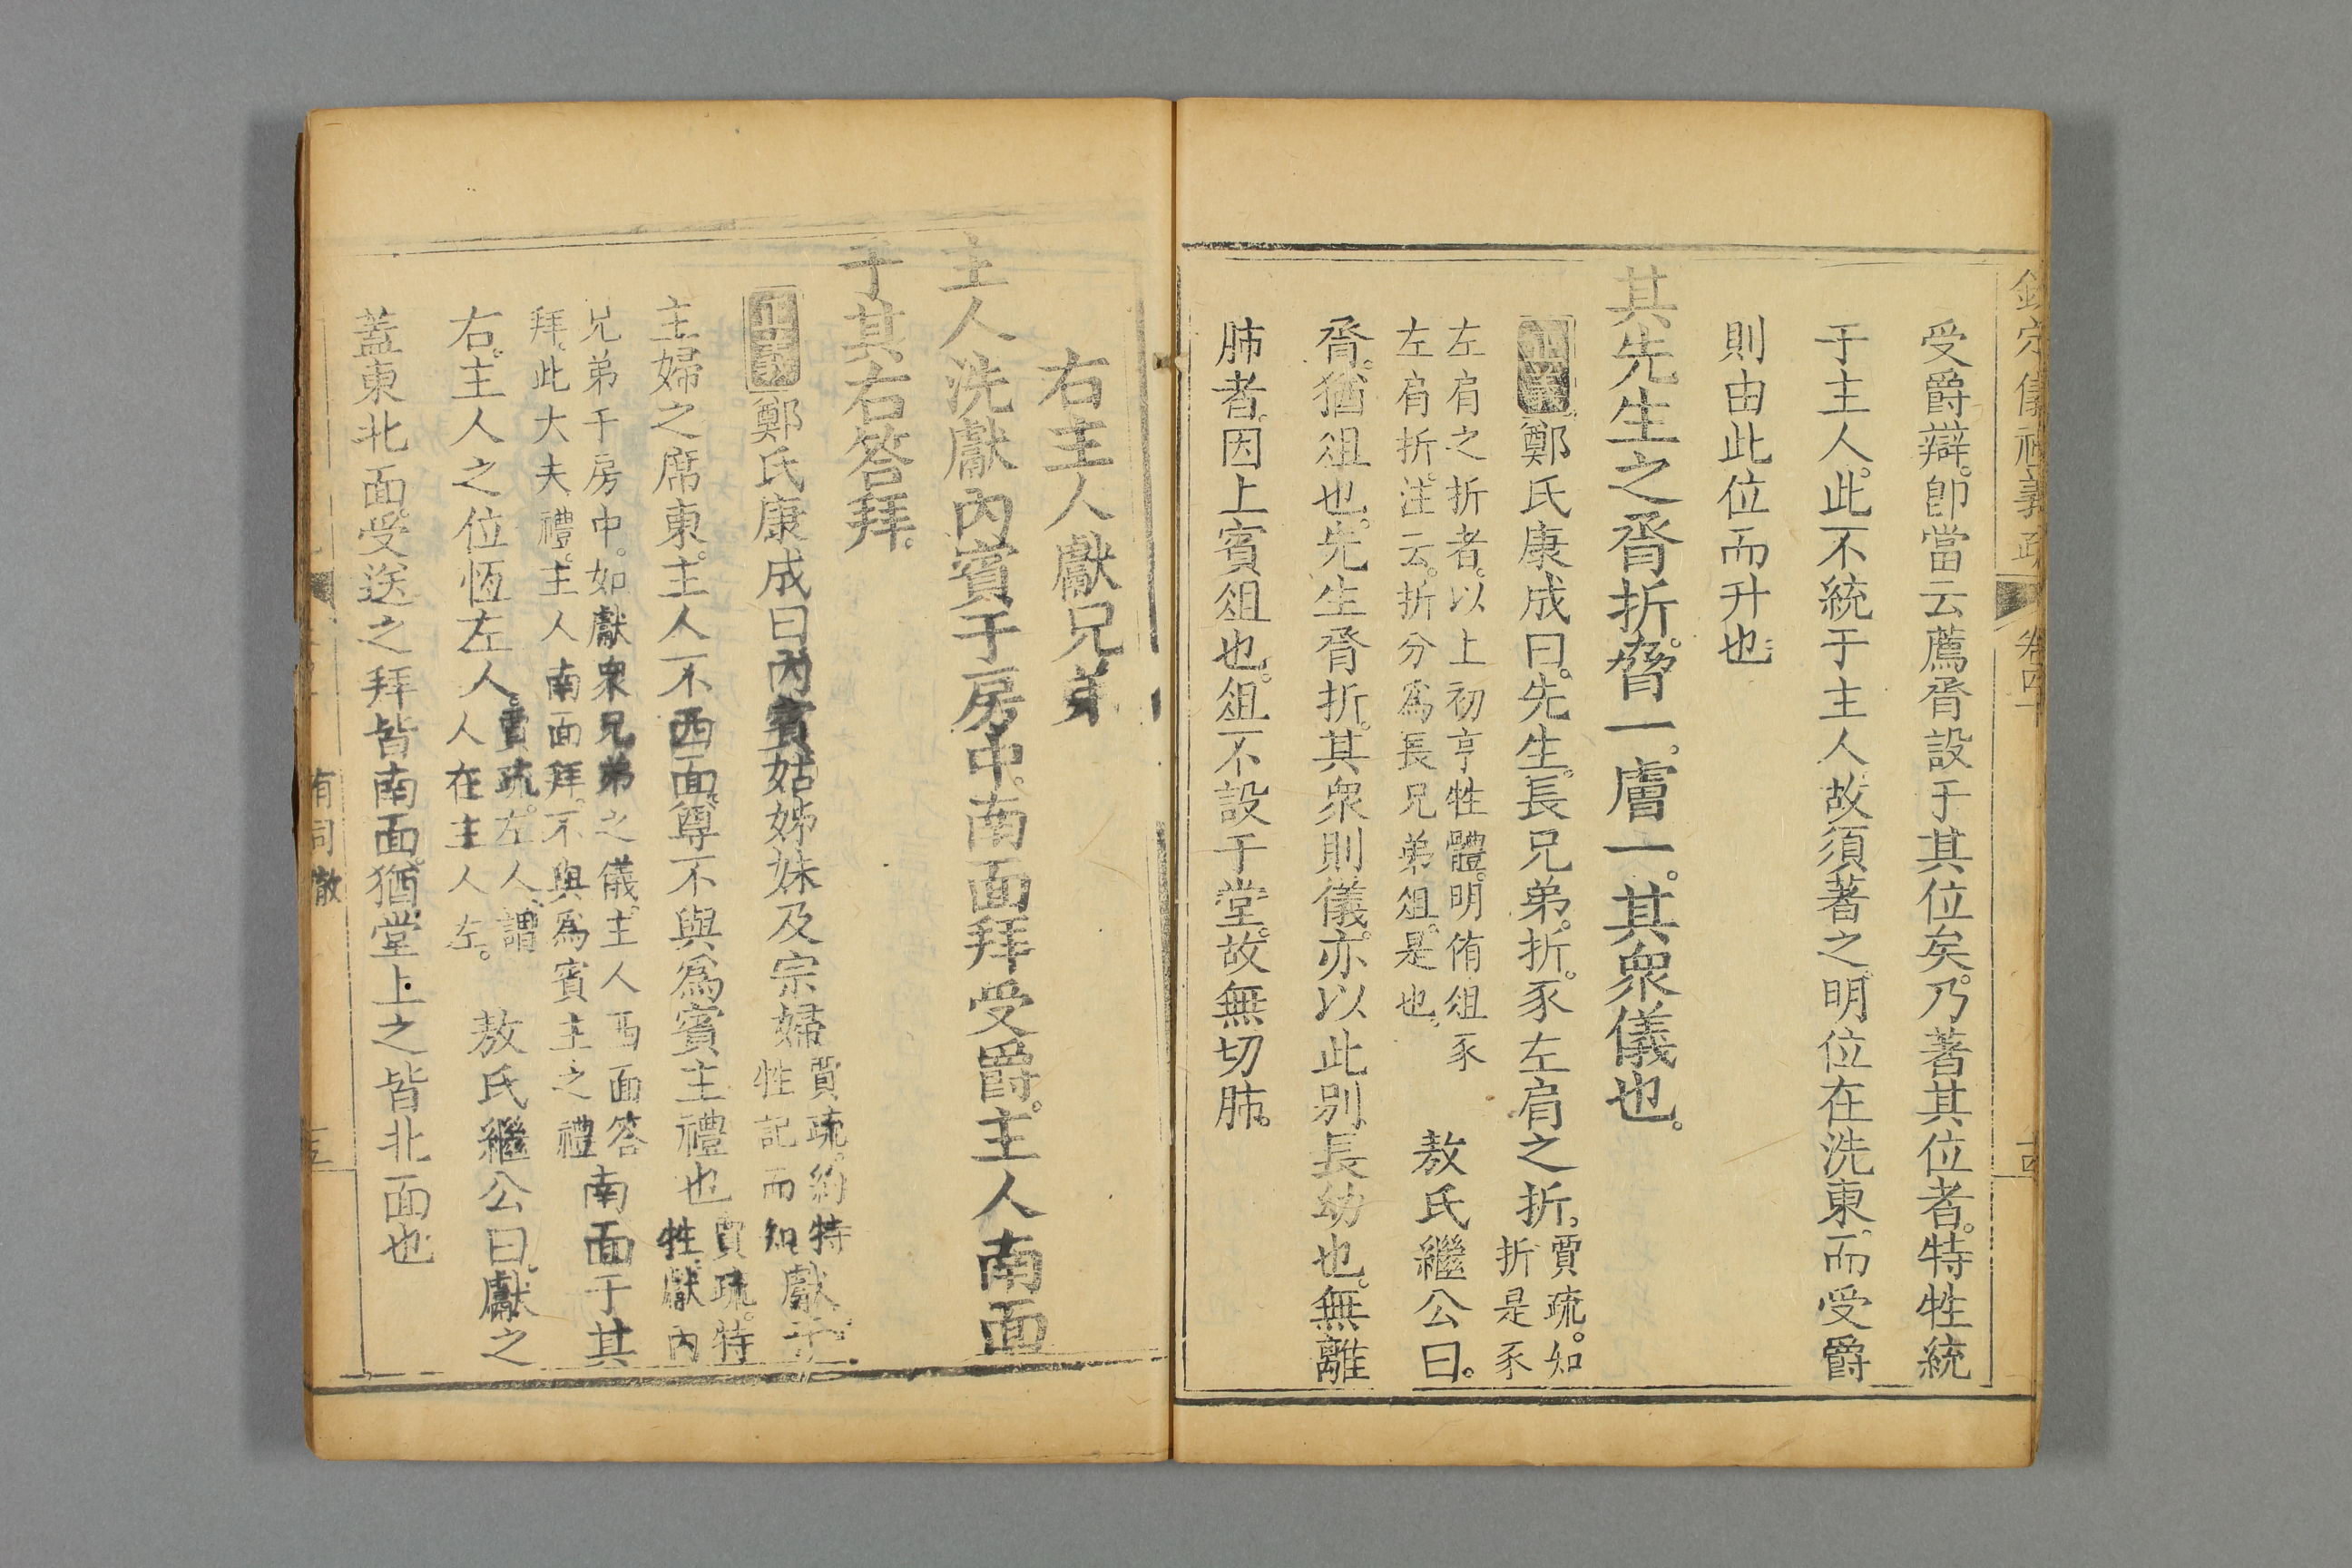 欽定儀禮義疏 卷四十
受爵辯。卽當云薦脀設于其位矣。乃著其位者。特牲統
于主人。此不統于主人。故須著之。明位在洗東。而受爵
則由此位而升也。
其先生之脀折。脅一。膚一。其衆儀也。
正義鄭氏康成曰。先生。長兄弟。折。豕左肩之折。賈疏。如
折是豕
左肩之折者。以上初亨牲體。明侑俎豕
左肩折。注云。折分爲長兄弟俎。是也。 敖氏繼公曰。
脀。猶俎也。先生脀折。其衆則儀。亦以此別長幼也。無離
肺者。因上賓俎也。俎不設于堂。故無切肺。
右主人獻兄弟
主人洗獻內賓于房中。南面拜受爵。主人南面
于其右答拜。
正義鄭氏康成曰內賓姑姊妹及宗婦賈疏。約特
牲記而知 獻于
主婦之席東。主人不西面。尊不與爲賓主禮也賈疏。特
牲。獻內
兄弟于房中。如獻衆兄弟之儀。主人西面答
拜。此大夫禮。主人南面拜。不與爲賓主之禮 南面于其
右。主人之位恆左人。賈疏。左人。謂
人在主人左。 敖氏繼公曰。獻之
蓋東北面。受送之拜皆南面。猶堂上之皆北面也
有司徹